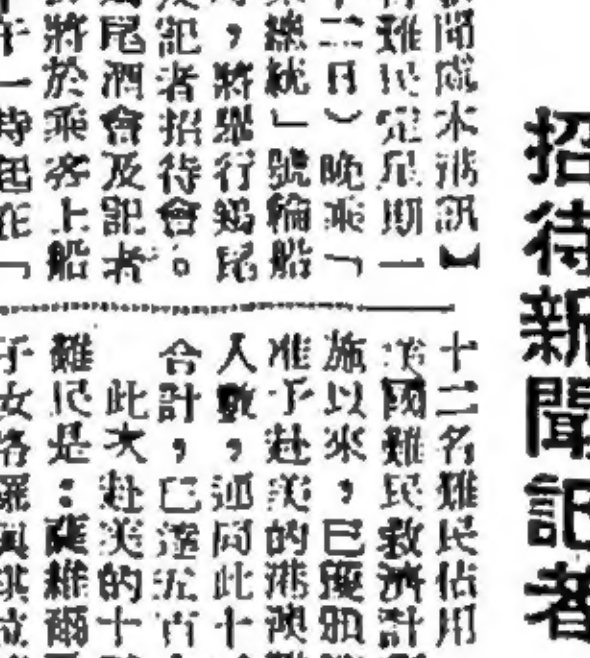 招待新聞記者
聞 本 訊】
難民定星期一
十二日）晚乘「
總統」號輪船
，將舉行鷄尾
記者招待會。
尾酒會及記者
將於乘客上船
午一時起在「
十二名難民佔用
美國難民救濟計
施以來，已獲
准予赴美的港澳
人數，連同此十
合計，已達五百
此次赴美的十
難民是：薩維爾
子女